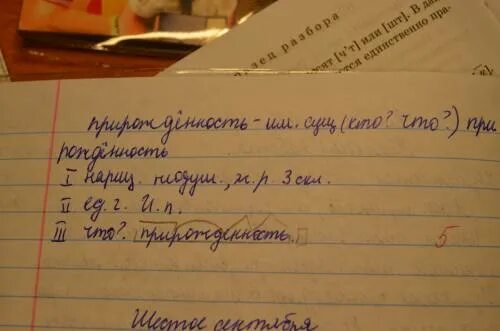 зец разбора
сят [ч'т] или [шт]. В да
ется единственно пра-
прирождённость - им. сущ (кто? что?) при
рождённость
I нариц. неодуш., ж.р. 3 скл.
II ед. г. И.п.
III что? прирожденность.
5
Шестое сентября